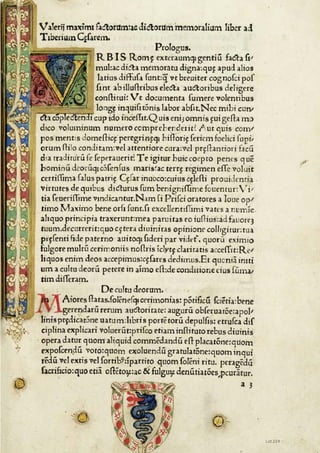 Valerij maximi factorum: ac dictorum memoralium liber ad
Tiberium Cęsarem.
Prologus.
VRBIS Romę exterarumq; gentiū facta si/
mul: ac dicta memoratu digna: quę apud alios
latius diffusa sunt: q̄ vt breuiter cognosci pos
sint ab illustribus electa auctoribus deligere
constitui: Vt documenta sumere volentibus
longę inquisitiōnis labor absit. Nec mihi cun/
cta cōplectendi cupido incessit. Quis enī omnis ęui gesta mo
dico voluminum numero comprehenderit? Aut quis com/
pos mentis domesticę peregrinęq; historię seriem foelici supe/
orum stilo conditam: vel attentiore cura: vel pręstantiori facū
dia traditurū se sperauerit? Te igitur huic coepto penes quē
hominū deorūq; cōsensus maris: ac terrę regimen esse voluit
certissima salus patrię Cęsar inuoco: cuius cęlesti prouidentia
virtutes de quibus dicturus sum benignissime fouentur: Vi/
tia seuerissime vindicantur. Nam si Prisci oratores a Ioue op/
timo Maximo bene orsi sunt: si excellentissimi vates a numie
aliquo principia traxerunt: mea paruitas eo iustius ad fauorę
tuum decurrerit: quo cętera diuinitas opinione colligitur: tua
pręsenti fide paterno auitoq; sideri par videt᷑. quorū eximio
fulgore multū cerimoniis nostris ĩclytę claritatis accessit: Re/
liquos enim deos accepimus: cęsares dedimus. Et quoniā initi
um a cultu deorū petere in aīmo est: de conditione eius sūma/
tim disseram.
De cultu deorum.
MAiores statas. solēnesq; cerimonias: pōtificū sciētia: bene
gerendarū rerum auctoritate: augurū obseruatōe: apol/
linis prędicatōne vatum: libris portētorū depulsis: etrusca dis
ciplina explicari voluerūt: prisco etiam instituto rebus diuinis
opera datur quom aliquid commēdandū est placatōne: quom
exposcendū voto: quom exoluendū gratulatōne: quom inqui
rēdū vel extis vel sortib⁹: impetrito quom solēni ritu. peragēdū
sacrificio: quo etiā ostētoꝝ: ac & fulguꝝ denūtiatōes ꝓcurātur.
a 3